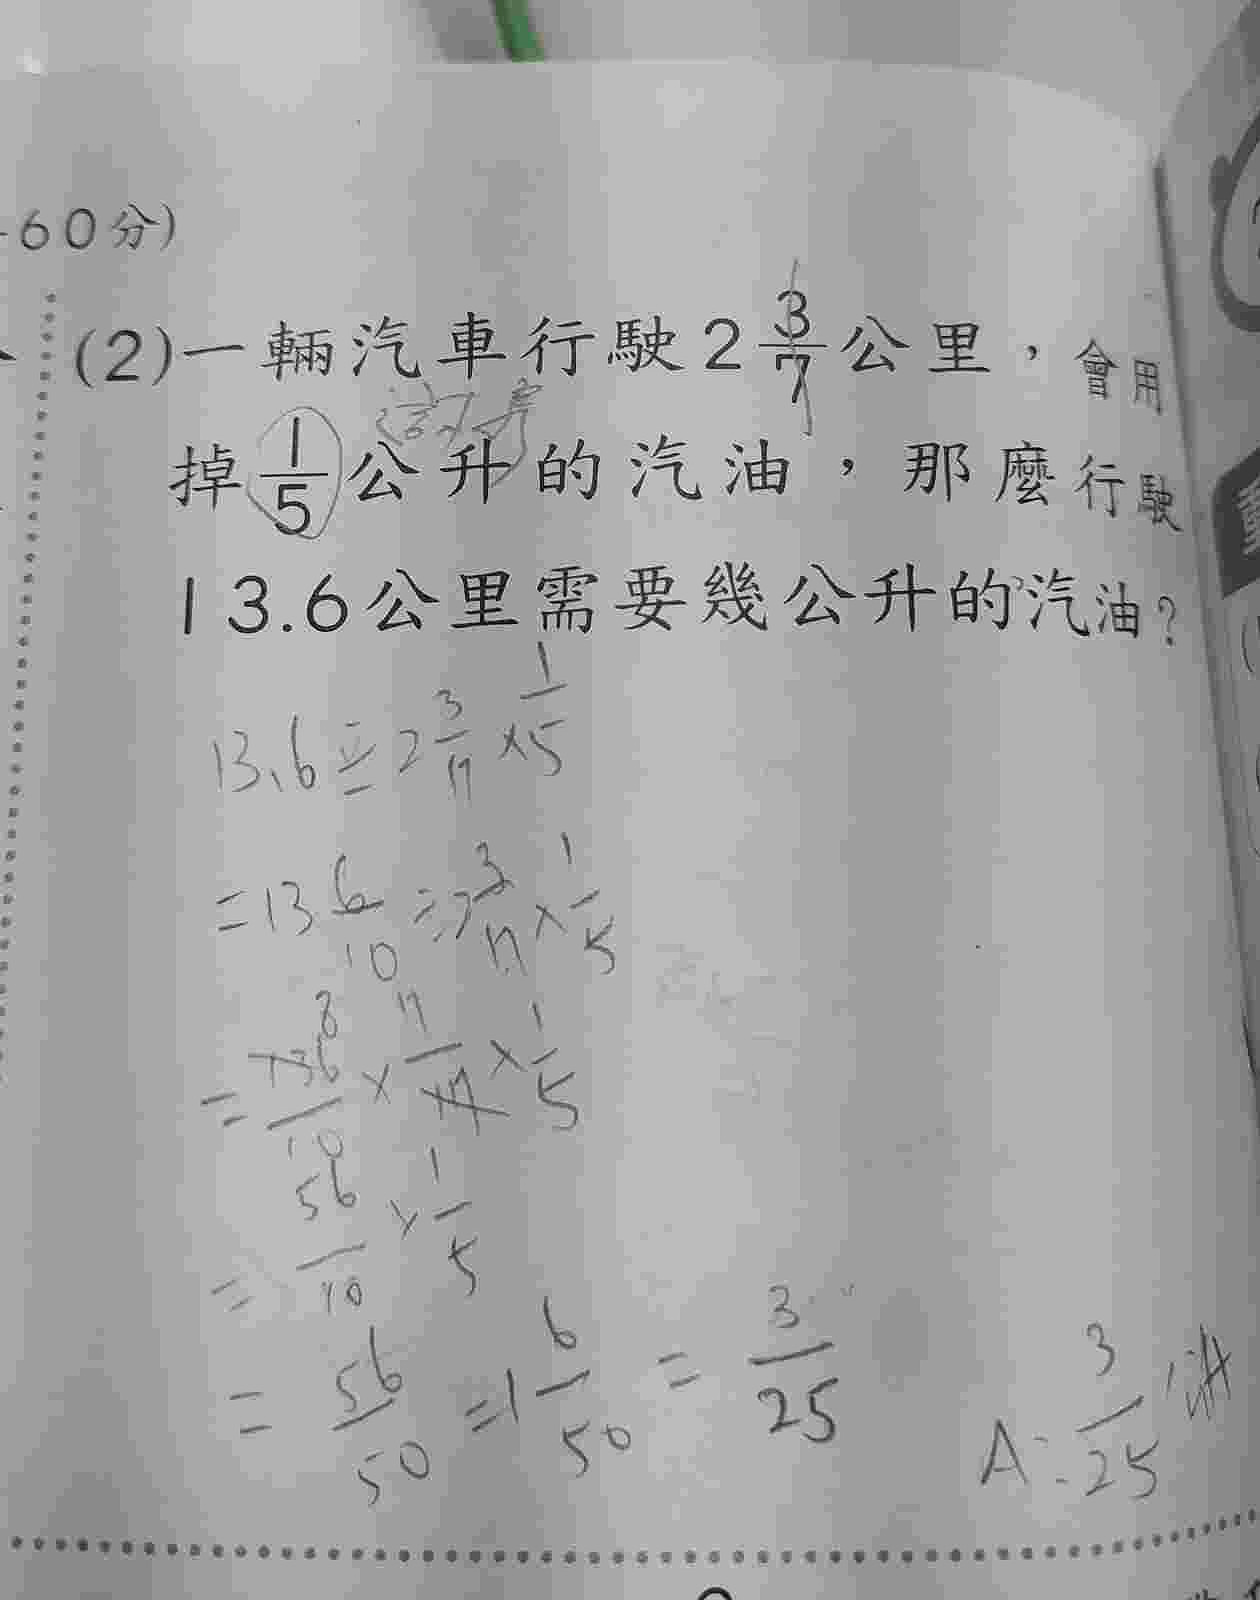 60分)
(2)一輛汽車行駛2 3/7 公里，會用
掉 1/5 公升的汽油，那麼行駛
13.6公里需要幾公升的汽油？
13.6 ÷ 2 3/7 × 1/5
= 13 6/10 ÷ 2 3/7 × 1/5
= 136/10 × 7/17 × 1/5
8
= 56/10 × 1/5
= 56/50 = 1 6/50 = 3/25
A: 3/25 公升